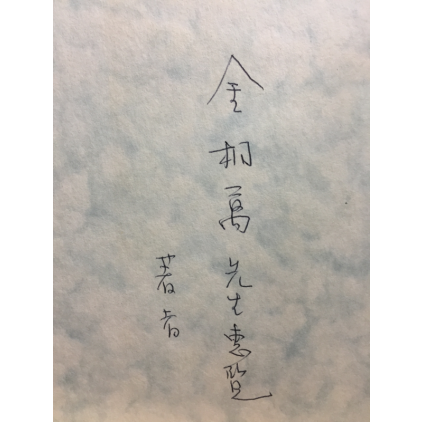 金相萬先生惠覽
著者